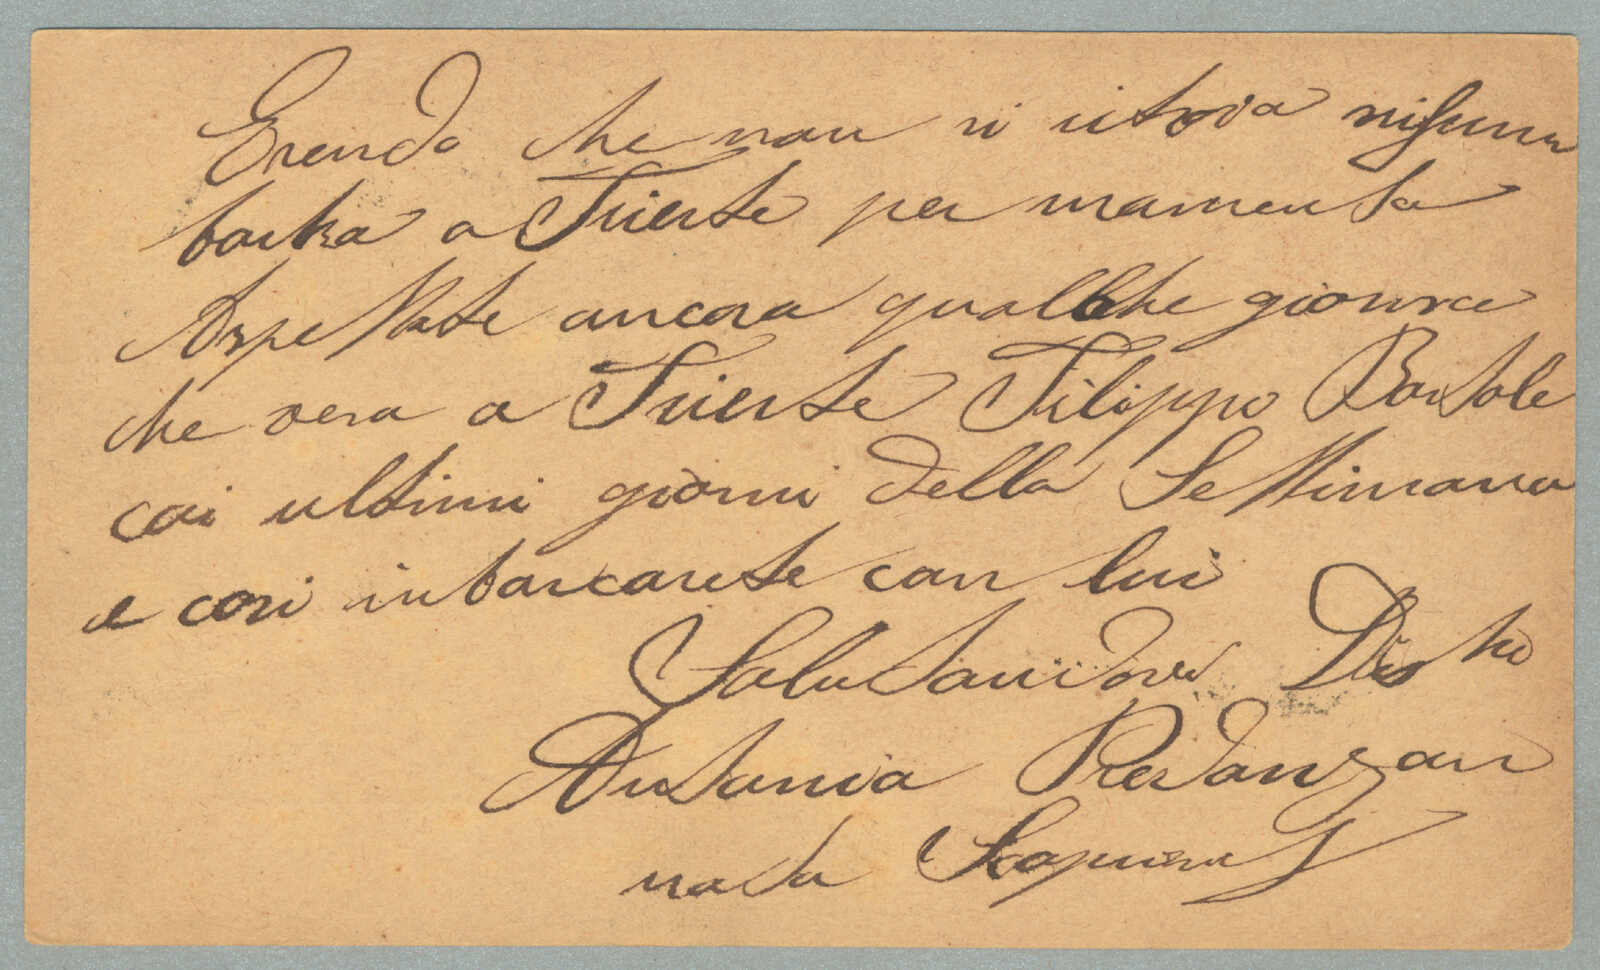 Erendo che non si istrova nissuna
barka a Trieste per momento
Aspettate ancora qualche giorno
che vera a Trieste Filippo Bartole
coi ultimi giorni della Settimana
e cosi inbarcarete con lui
Salutandovi
Antonia Predanzan
nata